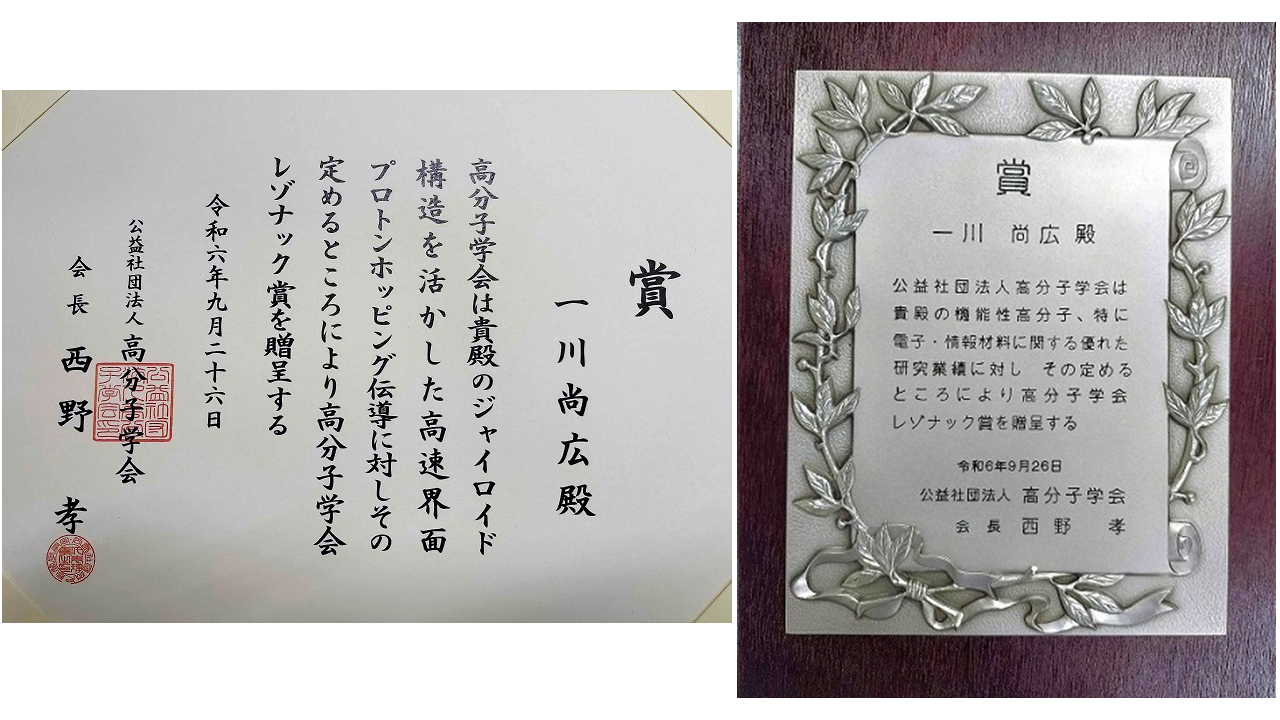 賞
一川尚広殿
高分子学会は貴殿のジャイロイド
構造を活かした高速界面
プロトンホッピング伝導に対しその
定めるところにより高分子学会
レゾナック賞を贈呈する
令和六年九月二十六日
公益社団法人 高分子学会
会長 西野 孝
賞
一川 尚広 殿
公益社団法人高分子学会は
貴殿の機能性高分子、特に
電子・情報材料に関する優れた
研究業績に対し その定める
ところにより高分子学会
レゾナック賞を贈呈する
令和6年9月26日
公益社団法人 高分子学会
会長 西野 孝